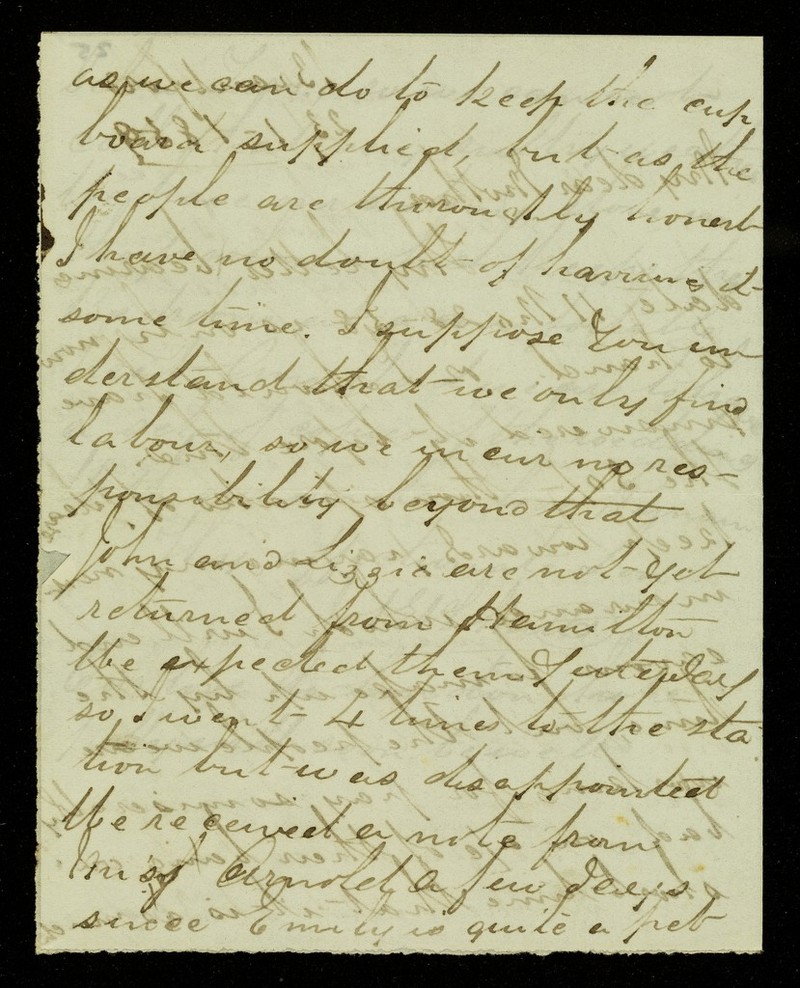 as we can do to keep the cup
board supplied, but as the
people are thoroughly honest
I have no doubt of having it
some time. I suppose You un
derstand that we only find
labour, so we incur no res-
ponsibility beyond that
John and Lizzie are not Yet
returned from Hamilton
We expected them Yesterday
so I went 4 times to the sta
tion but was disappointed
We received a note from
Arnold a few days
since Emily is quite a pet